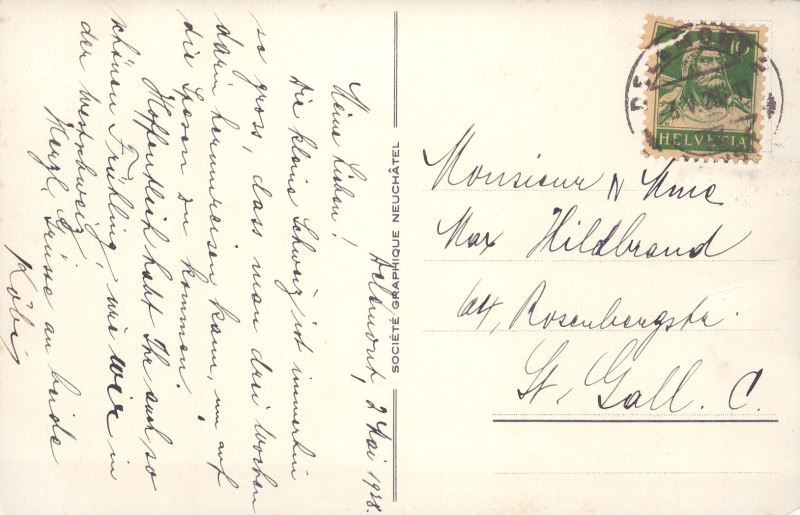 Delémont, 2 Mai 1928.
Meine Lieben!
Die kleine Schweiz ist immerhin
so gross, dass man drei Wochen
darin herumreisen kann, um auf
die Spesen zu kommen.
Hoffentlich habt Ihr auch so
schönen Frühling, wie wir in
der Westschweiz.
Herzl. Grüsse an beide
Köbi
SOCIÉTÉ GRAPHIQUE NEUCHÂTEL
10
HELVETIA
Monsieur & Mme
Max Hildbrand
64, Rosenbergstr.
St. Gall. C.